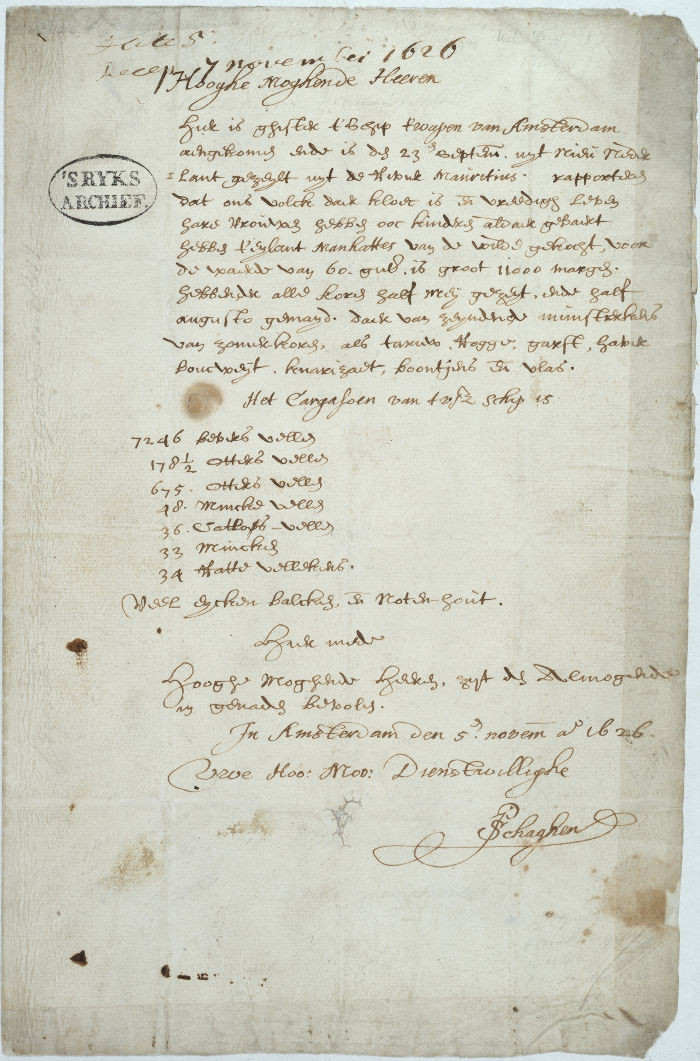 Recep. 7 november 1626
Hooghe Moghende Heeren
Hier is ghister t'Schip t'wapen van Amsterdam
aengekomen ende is den 23en Septem. uyt Nieu Neder
'S RYKS
ARCHIEF.
=lant gezeylt uyt de Rivier Mauritius. rapporteren
dat ons volck daer kloec is en vreedigh leven
hare Vrouwen hebben ooc kinderen aldaer gebaert
hebben t'eylant Manhattes van de wilde gekocht, voor
de waerde van 60. guld. is groot 11000 margen.
hebbender alle koren half Mey gezeyt, ende half
augusto gemayd. daer van zeyndende munsterkens
van zomerkoren, als taruw, Rogge, garst, haver
boucweyt, knarizaet, boontjens en vlas.
Het Cargasoen van t'vsz Schip is
7246 bevers vellen
178½ Otters vellen
675. Otters vellen
48. Mincke vellen
36. Catloes vellen
33 Mincken
34 Ratte vellekens.
Veel eycken balcken, en Noten-hout.
Hier mede
Hooghe Moghende Heeren, zyt den Almogende
in genaden bevolen.
In Amsterdam den 5en. novem ao 1626.
Uwe Hoo: Moo: Dienstwillighe
P Schaghen